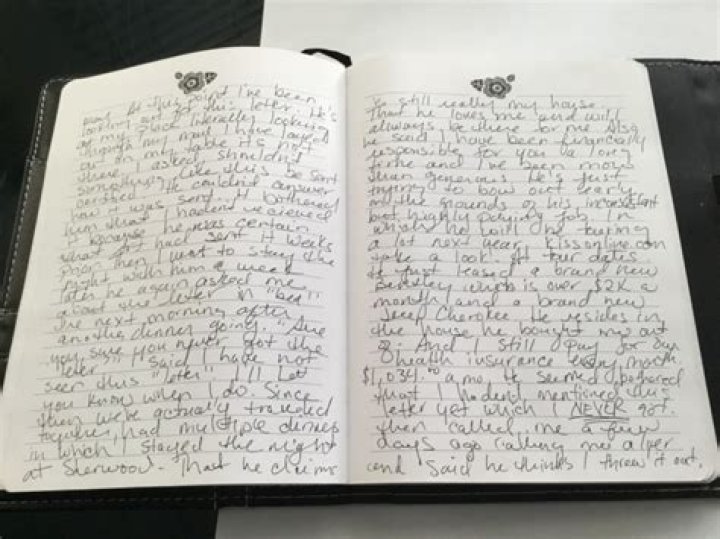 may. At this point I've been
looking out for this letter. He's
at my place literally looking
through my mail I have layed
out on my table it's not
there. I asked shouldn't
something like this be sent
certified. He couldn't answer
how it was sent. It bothered
him that I hadn't recieved
it because he was certain
what had sent it weeks
prior then I went to stay the
night with him a week
later he again asked me
about the letter in "bed"
the next morning after
another dinner going. "Are
you sure you never got the
letter" I said I have not
seen this "letter" I'll let
you know when I do. Since
then we've actually traveled
together, had multiple dinners
in which I stayed the night
at Sherwood. That he claims
is still really my house.
That he loves me and will
always be there for me. Also
he said I have been financially
responsible for you a long
time and I've been more
than generous. He's just
trying to bow out early
on the grounds of his inconsistent
but highly paying job. In
which he will be touring
a lot next year. kissonline.com
take a look. At tour dates.
He just leased a brand new
Bentley which is over $2K a
month and a brand new
Jeep Cherokee. He resides in
the house he bought me out
of. And I still pay for our
health insurance every month.
$1,034.00 a mo. He seemed bothered
that I hadn't mentioned this
letter yet which I NEVER got.
then called me a few
days ago calling me a liar
and said he thinks I threw it out.